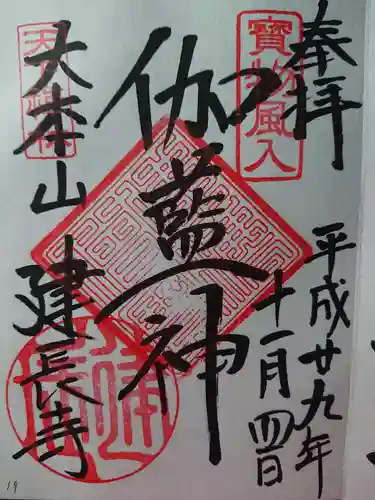 奉拝
寳物風入
平成廿九年
十一月四日
伽藍神
大本山
建長寺
19